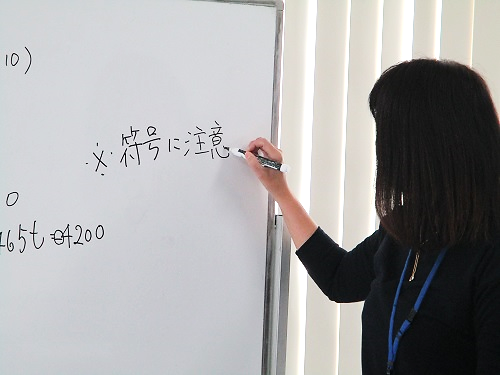 10)
※符号に注意
0
465t=4200